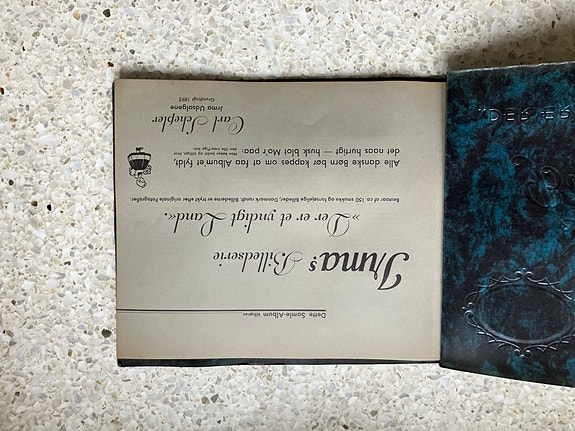 Dette Samle-Album tilhører
Irma's Billedserie
»Der er et yndigt Land«.
Bestaar af ca. 150 smukke og fornøjelige Billeder, Danmark rundt. Billederne er trykt efter originale Fotografier.
Alle danske Børn bør kappes om at faa Albumet fyldt,
det naas hurtigt — husk blot Mo'r paa:
Carl Schepler
Irma Udsalgene
Grundlagt 1893
DER ER ED